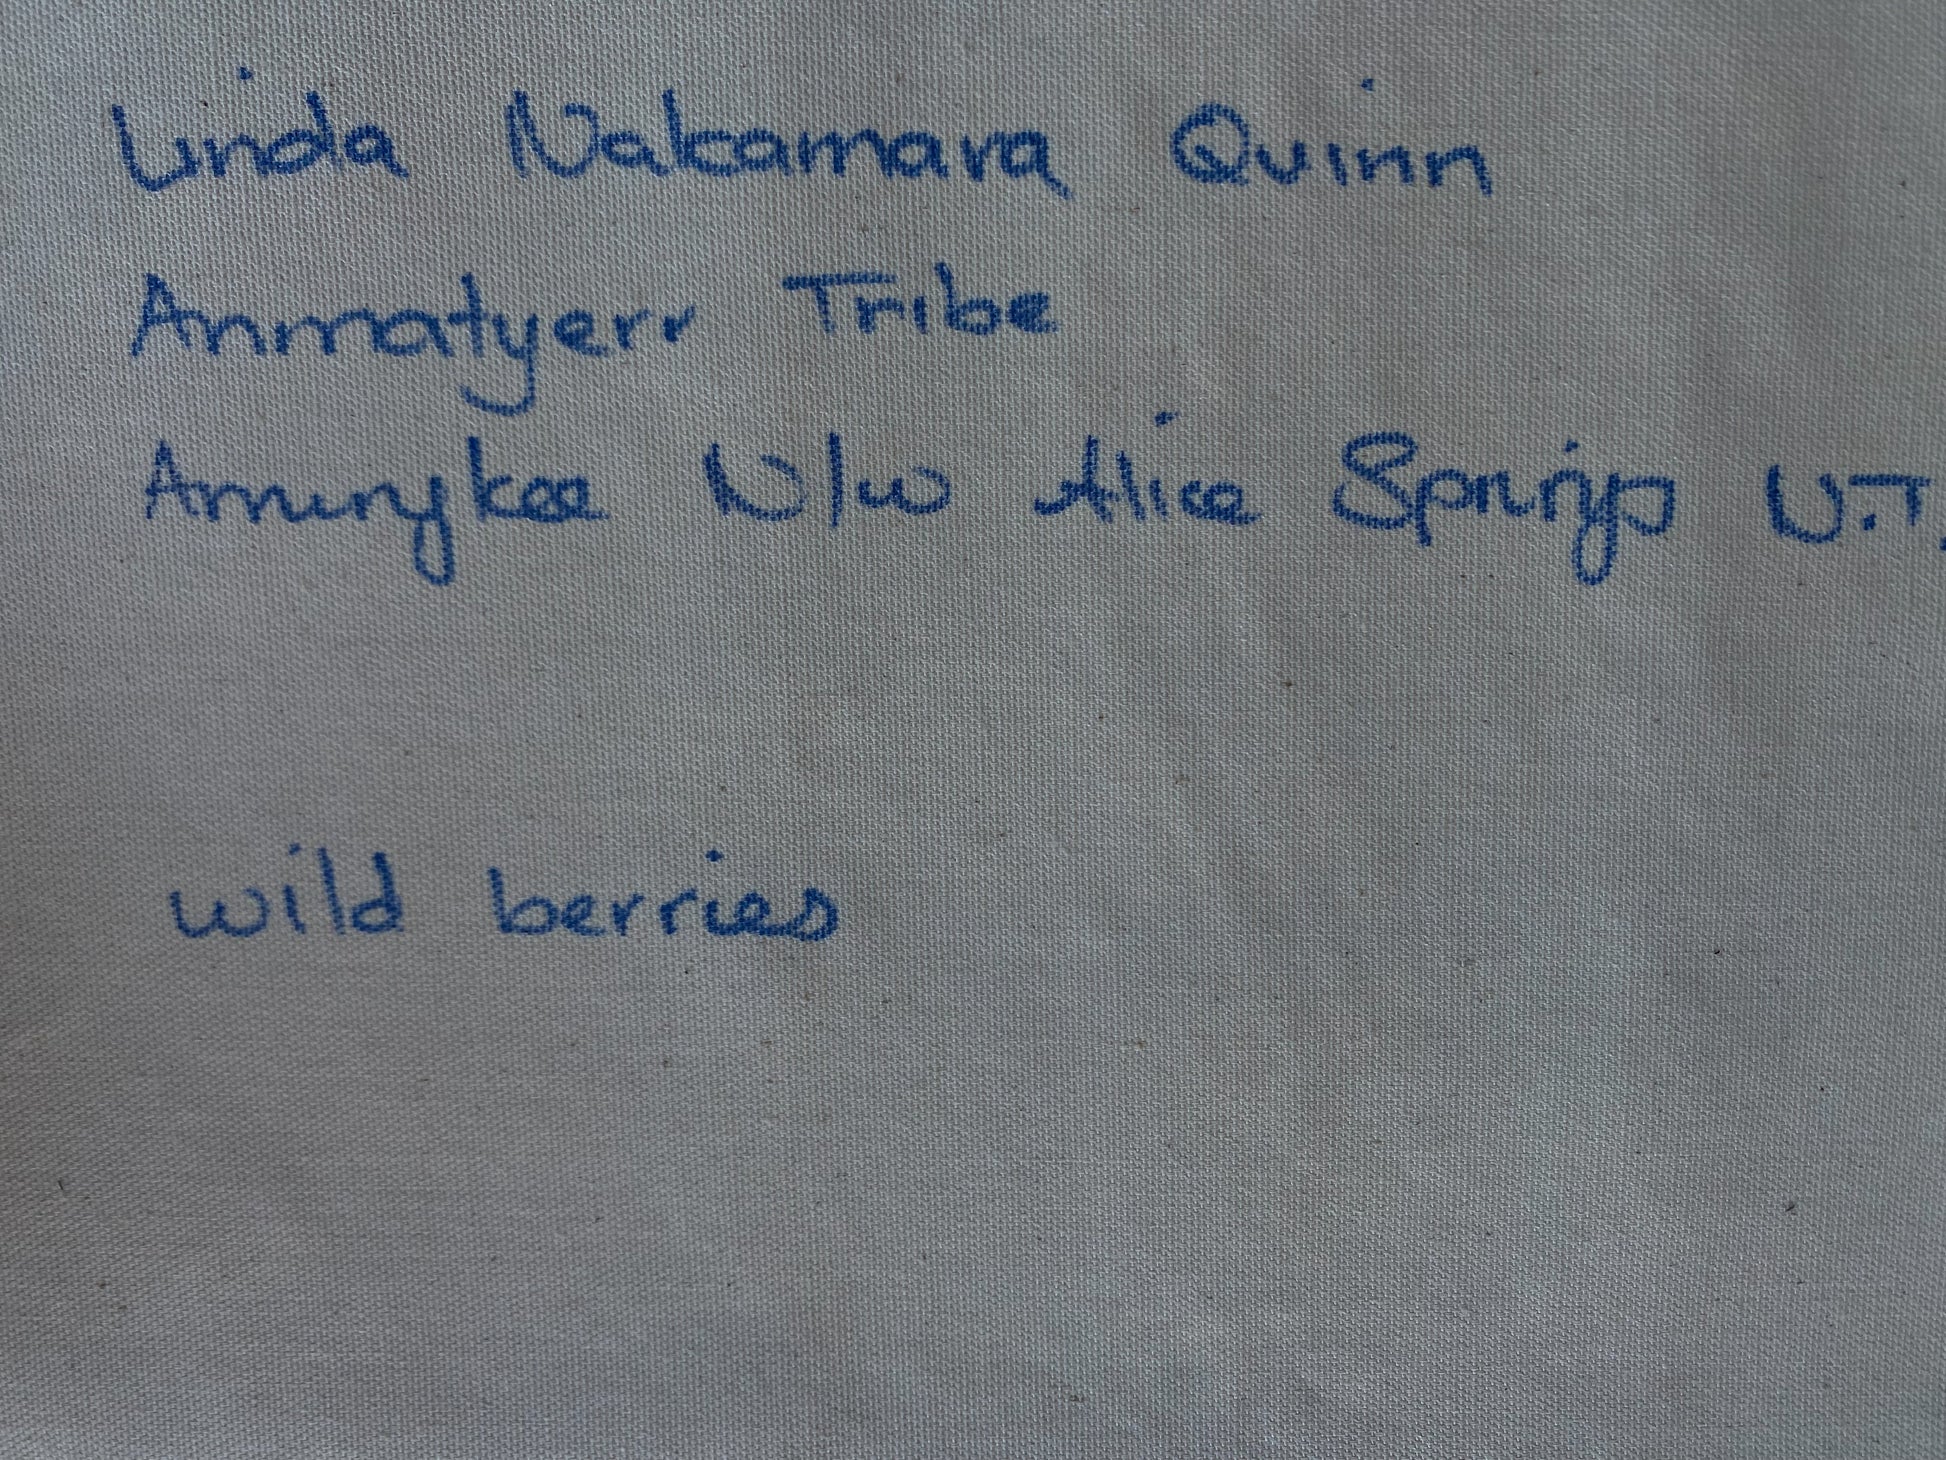 Linda Nakamara Quinn
Anmatyerr Tribe
Amungkee N/w Alice Springs N.T.
wild berries